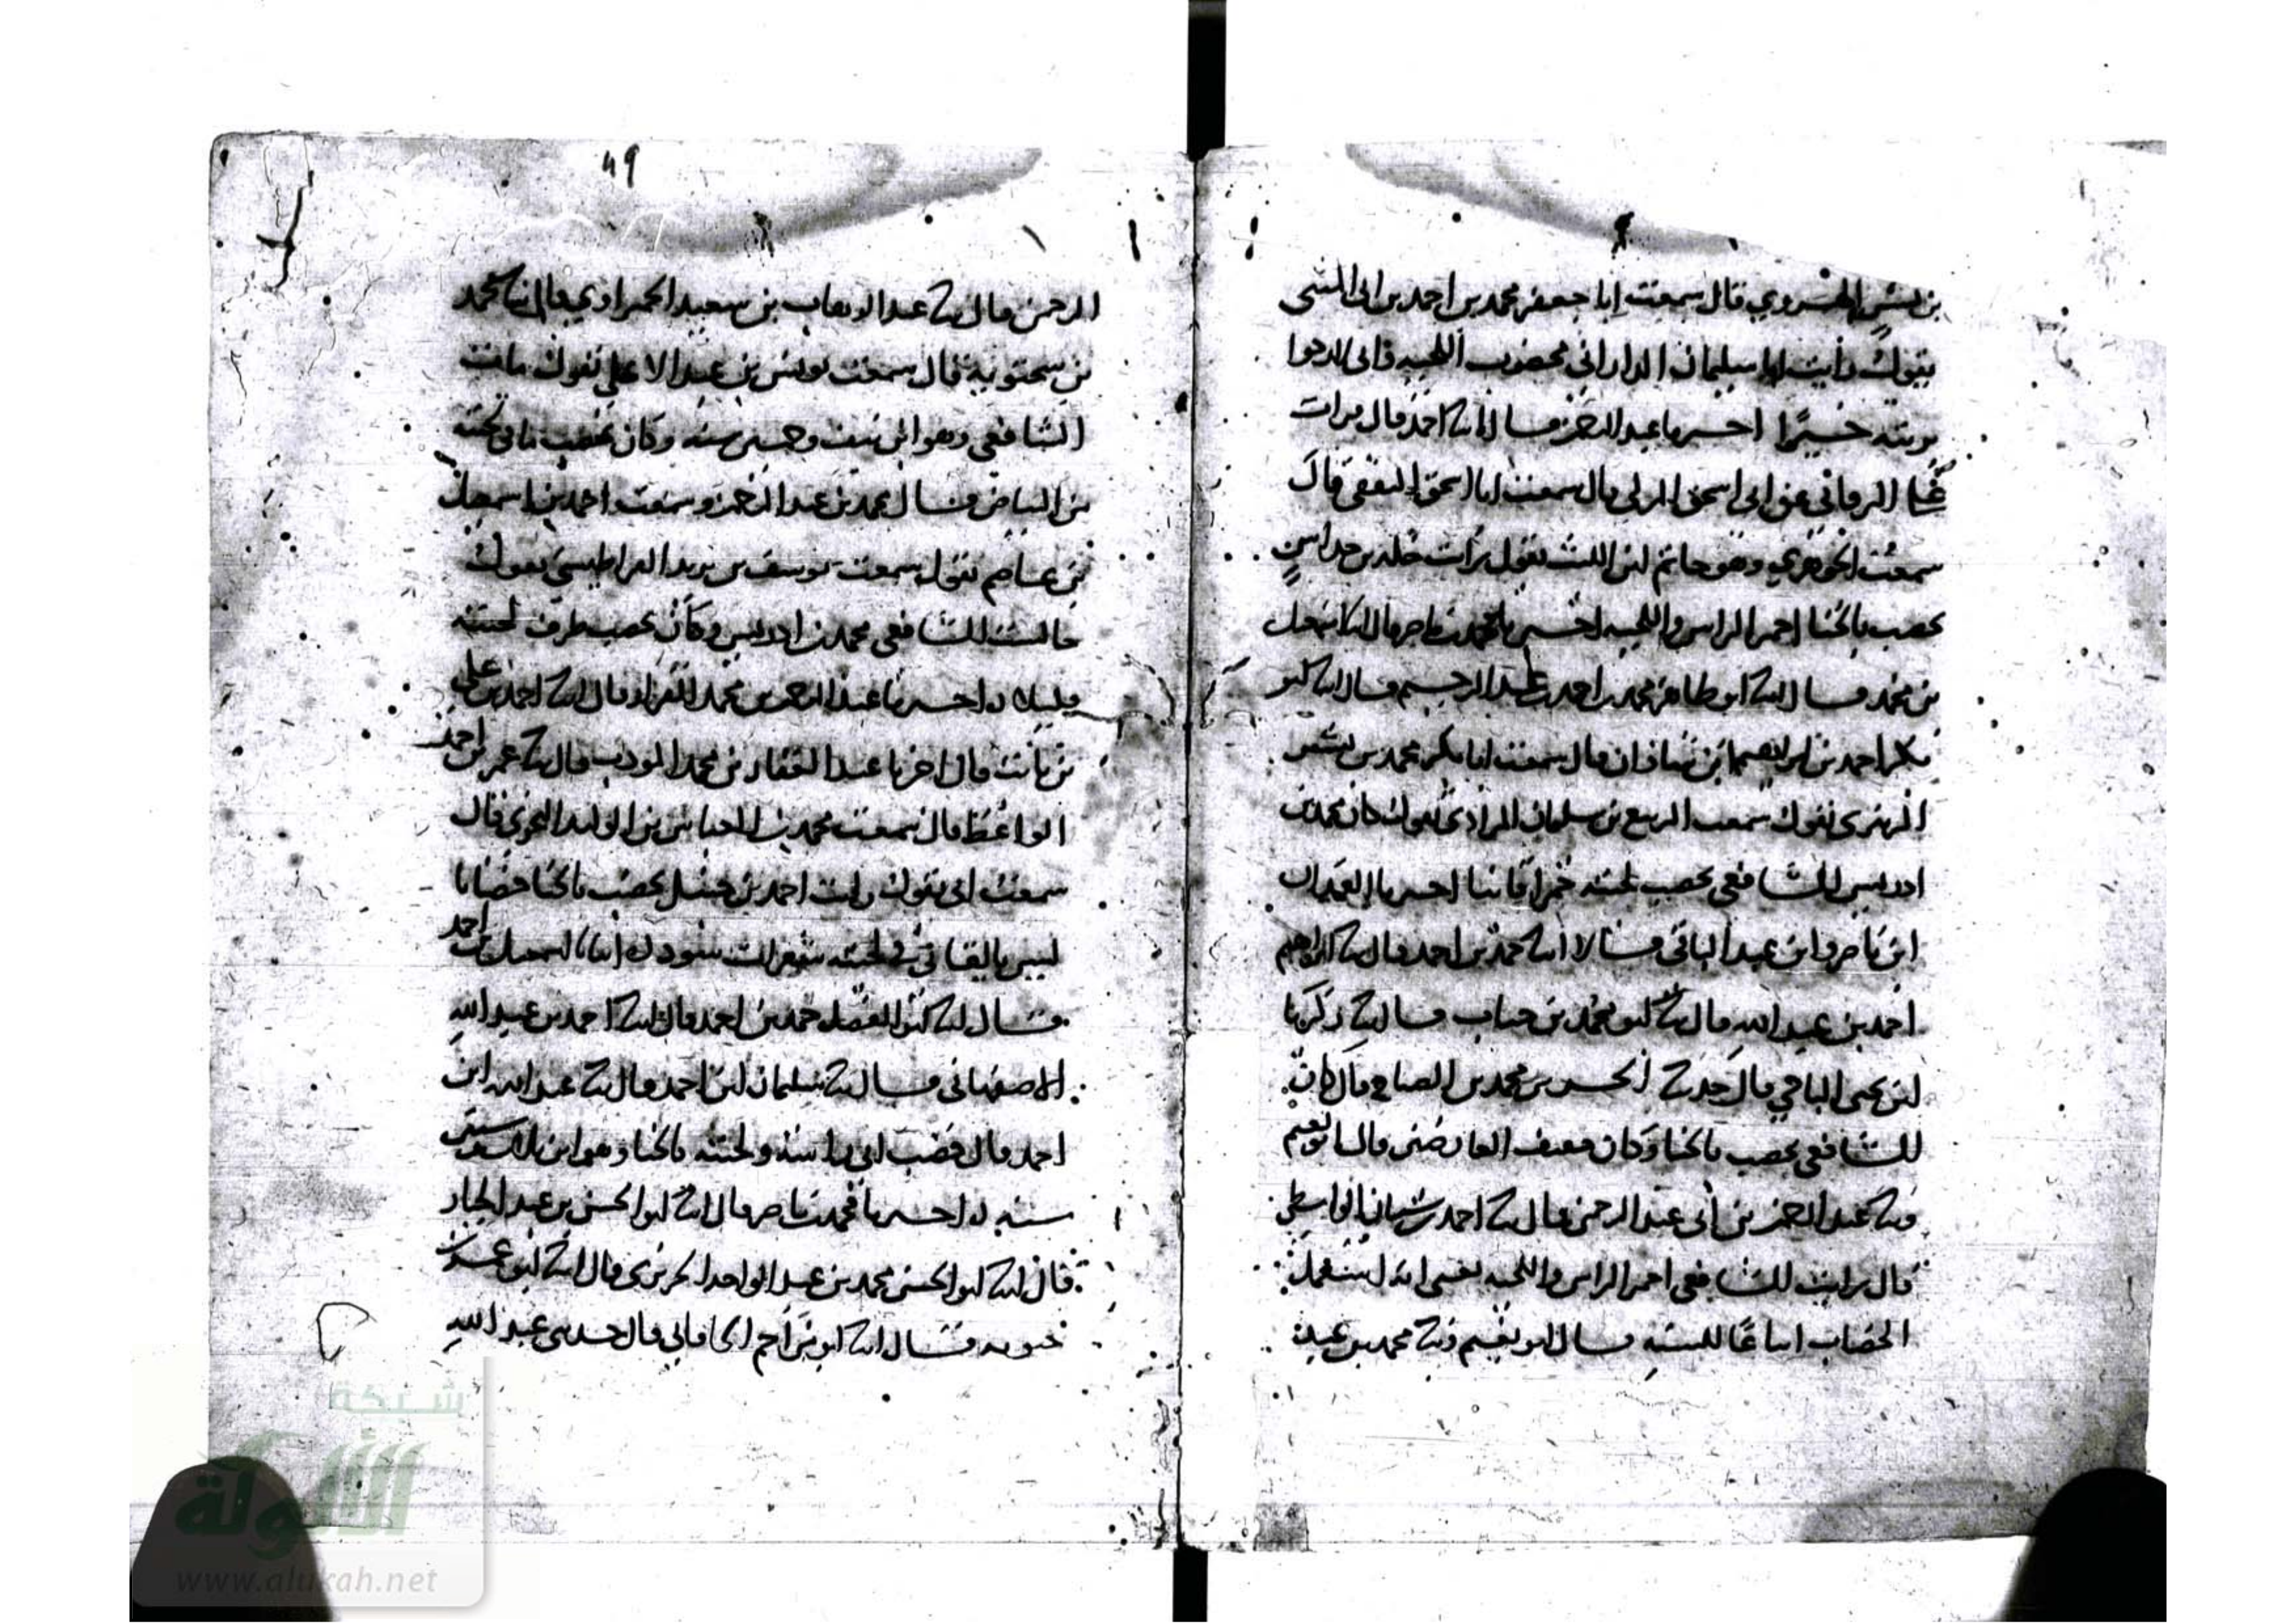 بن بشر الهروي قال سمعت ابا جعفر محمد بن احمد بن ابي المثنى
يقول رايت ابا سليمان الداراني مخضوب اللحية
خيرا اخبرنا عبد الرحمن قال انا احمد قال قرات
على البرقاني عن ابي اسحق المزكي قال سمعت ابا اسحق الثقفي قال
سمعت الجوهري وهو حاتم ابن الليث يقول رأيت خلد بن خداش
يخضب بالحنا احمر الراس واللحية اخبرنا محمد بن ناصر قال انا اسمعيل
بن محمد قال انا ابو طاهر محمد بن احمد بن عبد الرحيم قال انا ابو
بكر احمد بن ابراهيم ابن شاذان قال سمعت ابا بكر محمد بن بشر
يقول سمعت الربيع بن سليمان المرادي يقول كان محمد بن
ادريس الشافعي يخضب لحيته حمرا قانيا اخبرنا المحمدان
ابن ناصر وابن عبد الباقي قالا انا حمد بن احمد قال نا
احمد بن عبد الله قال نا ابو محمد بن حيان قال نا زكريا
ابن يحيى قال حدثنا الحسن بن محمد بن الصباح قال كان
الشافعي يخضب بالحنا وكان خفيف العارضين قال ابو نعيم
ونا عبد الرحمن بن ابي عبد الرحمن قال نا احمد بن سنان الواسطي
قال رايت الشافعي احمر الراس واللحية يعني انه استعمل
الخضاب اتباعا للسنة قال ابو نعيم ونا محمد بن عبد
49
الرحمن قال نا عبد الوهاب بن سعيد الحمراوي قال نا محمد
بن سحتويه قال سمعت يونس بن عبد الاعلى يقول مات
الشافعي وهو ابن نيف وخمسين سنة وكان يخضب ما في لحيته
من البياض قال محمد بن عبد الرحمن وسمعت احمد بن اسمعيل
بن عاصم يقول سمعت يوسف بن يزيد القراطيسي يقول
جالست الشافعي محمد بن ادريس وكان يخضب طرف لحيته
قليلا اخبرنا عبد الرحمن بن محمد القزاز قال انا احمد بن علي
بن ثابت قال اخبرنا عبد الغفار بن محمد المودب قال نا عمر بن احمد
الواعظ قال سمعت محمد بن العباس بن الوليد النحوي قال
سمعت ابي يقول رايت احمد بن حنبل يخضب بالحنا خضابا
ليس بالقاني في لحيته شعرات سود انبانا اسمعيل بن احمد
قال انا ابو الفضل حمد بن احمد قال انا احمد بن عبد الله
الاصفهاني قال نا سليمان ابن احمد قال نا عبد الله ابن
احمد قال خضب ابي راسه ولحيته بالحنا وهو ابن ثلاث وستين
سنة اخبرنا محمد بن ناصر قال انا ابو الحسن بن عبد الجبار
قال انا ابو الحسن محمد بن عبد الواحد الحريري قال انا ابو عمر بن
حيويه قال انا ابو مزاحم الخاقاني قال حدثني عبد الله
شبكة
الألوكة
www.alukah.net